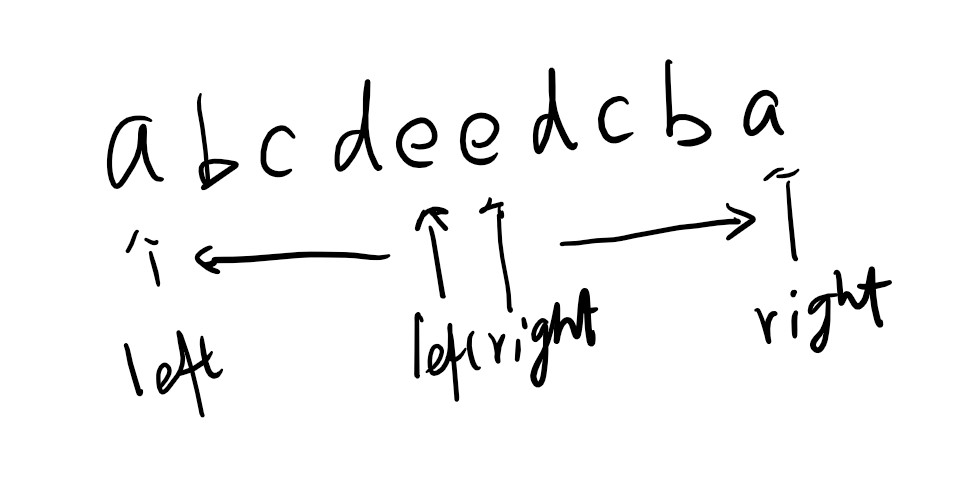 a b c d e e d c b a
left left right right